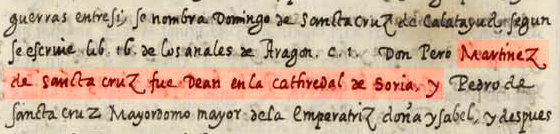 guerras entresi, se nombra Domingo de Sanctacruz de Calatayud, segun
se escriue lib. 16. de los anales de Aragon. c. 1. Don Pero Martinez
de sancta cruz fue Dean en la cathredal de Soria, y Pedro de
sancta cruz Mayordomo mayor dela Emperatriz doña ysabel, y despues